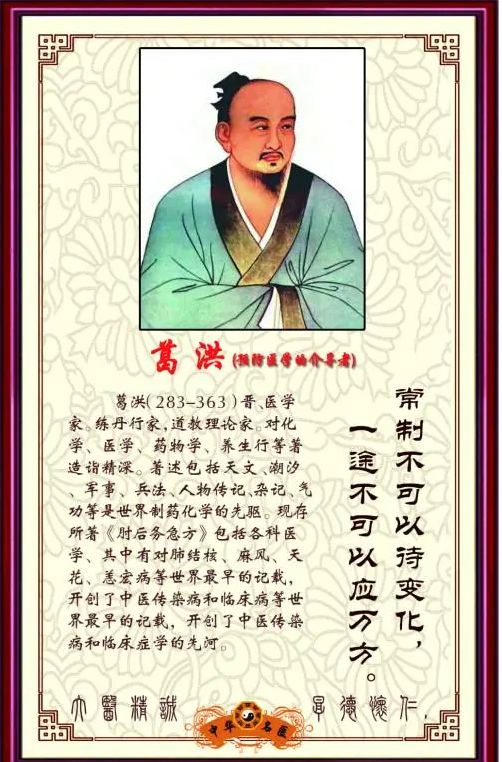 葛洪(预防医学的介导者)
葛洪(283-363)晋、医学
家。练丹行家,道教理论家。对化
学、医学、药物学、养生行等著
造诣精深。著述包括天文、潮汐
、军事、兵法、人物传记、杂记、气
功等是世界制药化学的先驱。现存
所著《肘后务急方》包括各科医
学、其中有对肺结核、麻风、天
花、恙宏病等世界最早的记载,
开创了中医传染病和临床病等世
界最早的记载,开创了中医传染
病和临床症学的先河。
常制不可以待变化,
一途不可以应万方。
大醫精誠
厚德懷仁,
中华名医